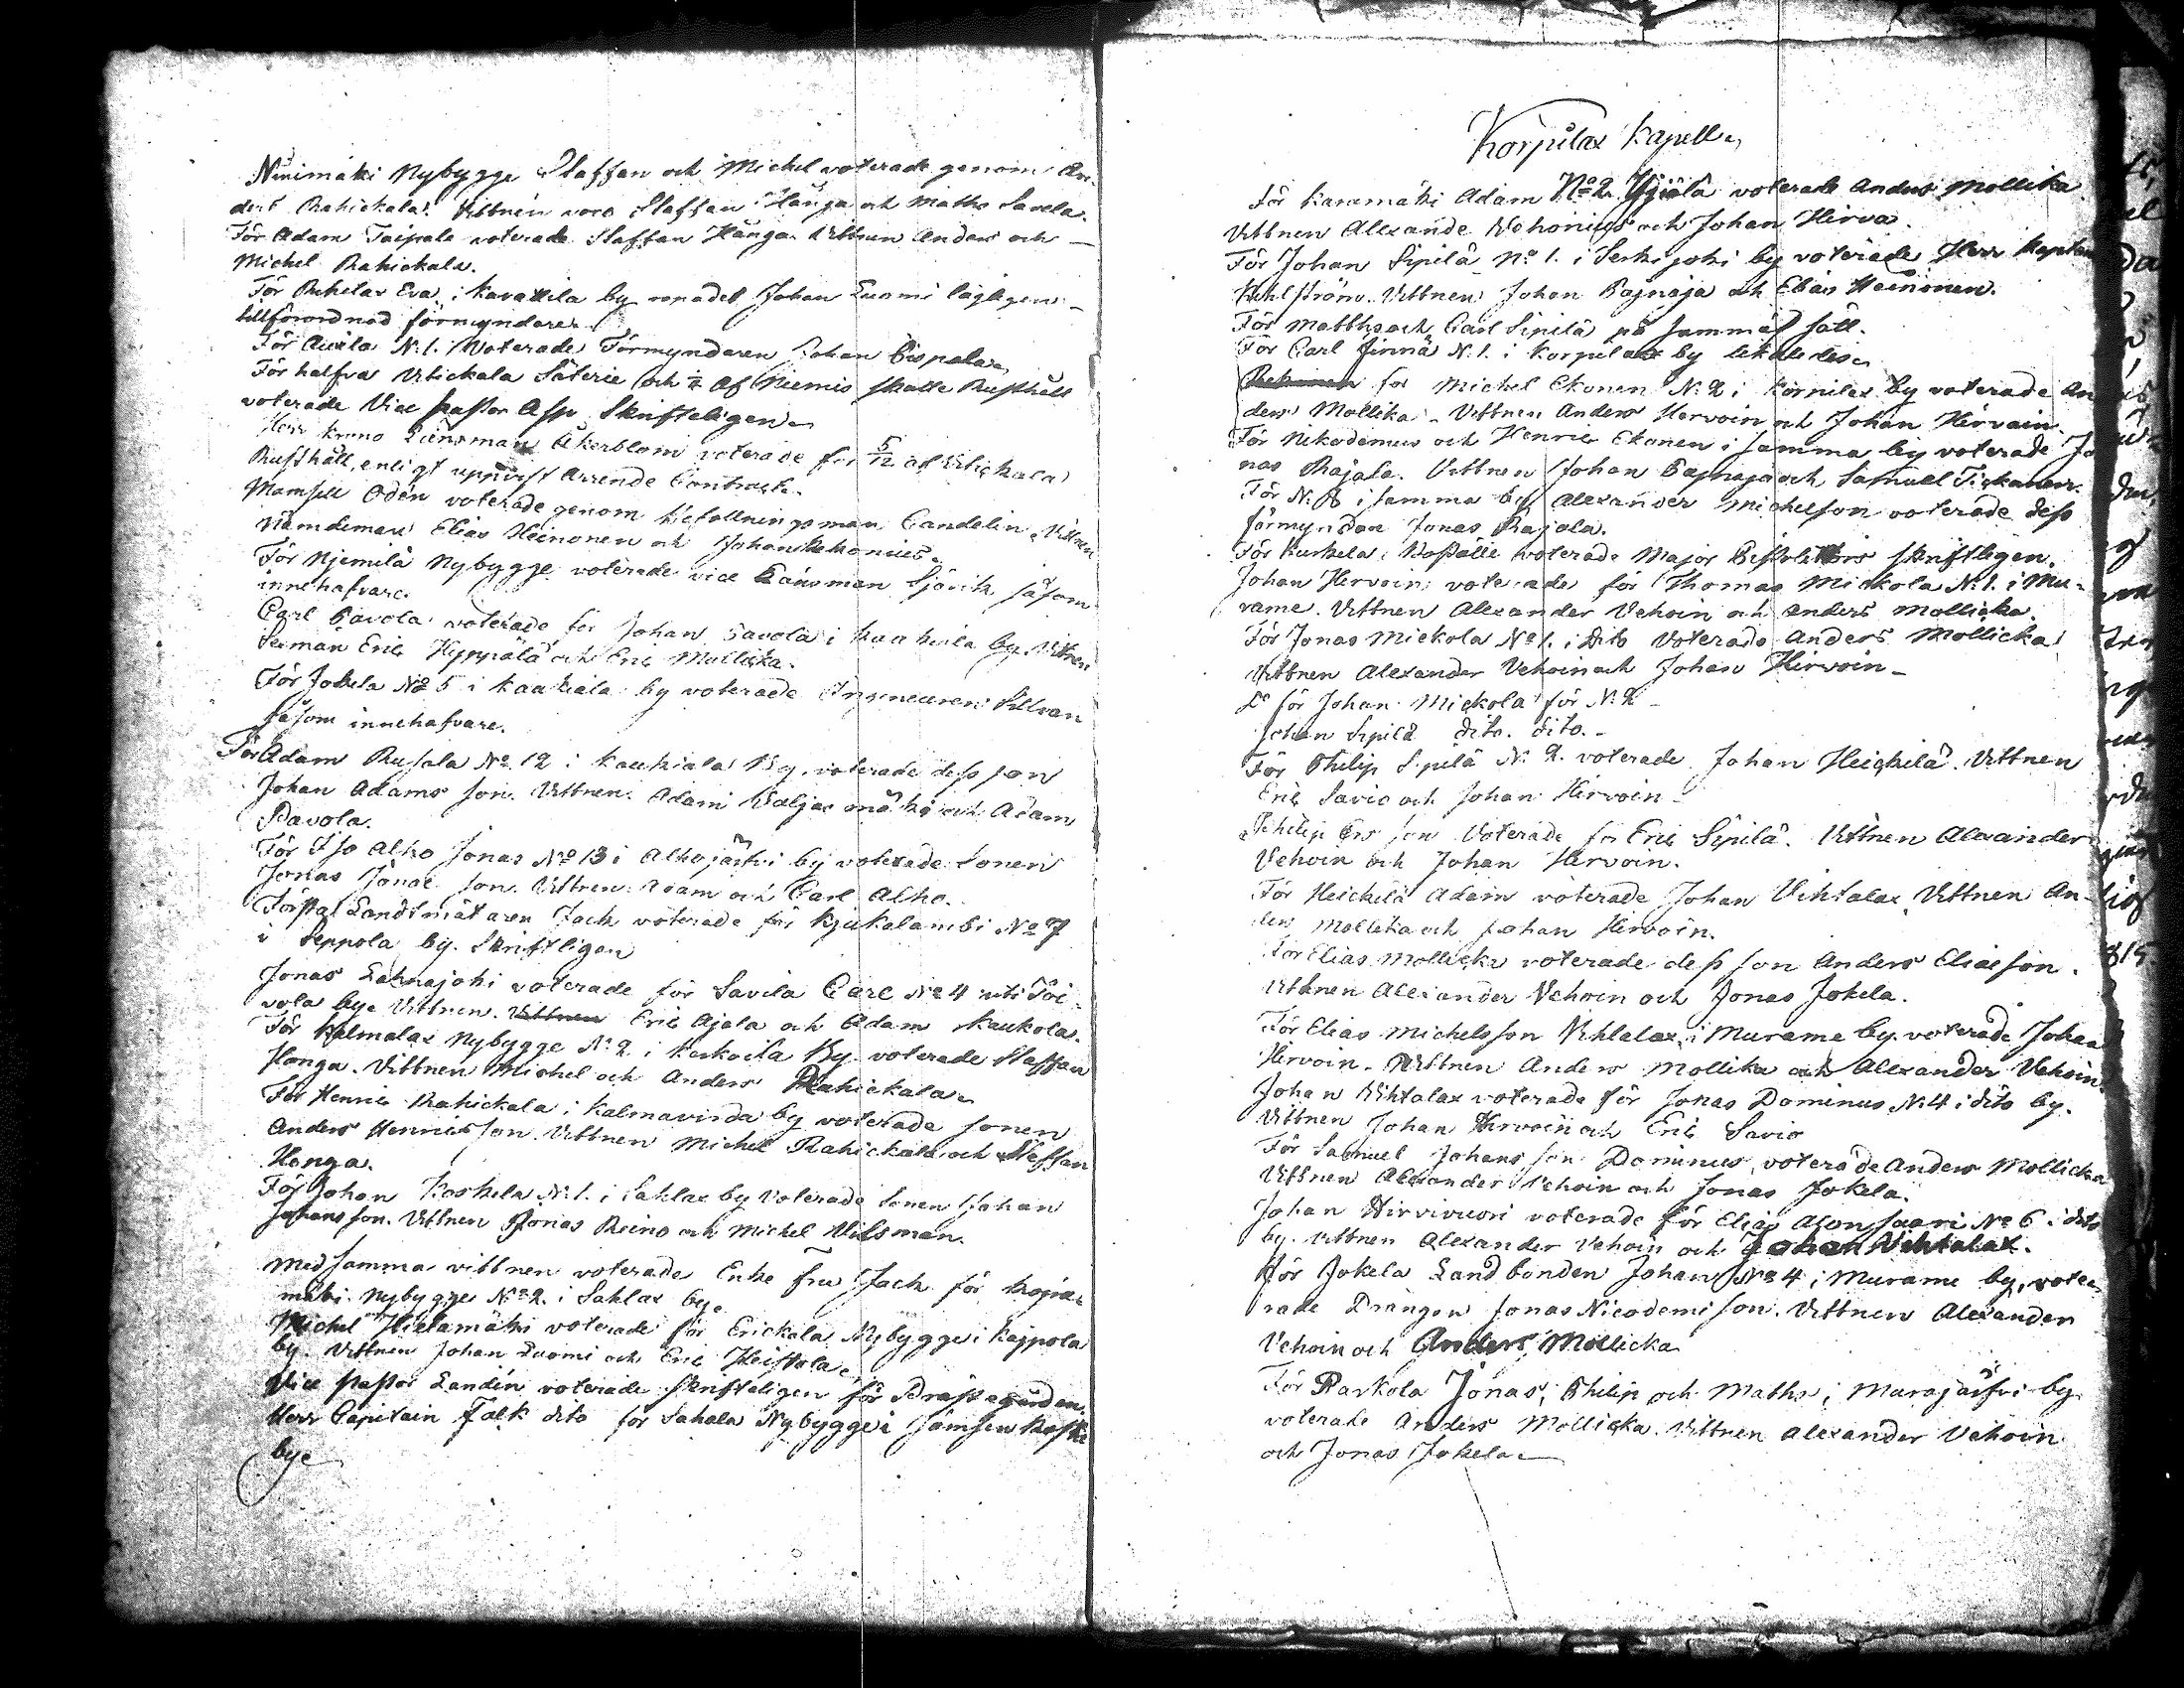 Ninimäki Nybygge Staffan och Michel voterade genom An-
ders Rahickala. Vittnen voro Staffan Hånga och Maths Savela.
För Adam Taipale voterade Staffan Hånga. Vittnen Anders och
Michel Rahickala.
För Eva i Karattila by Johan Luomi lagligen
tillförordnad förmyndare.
För Auvila N:1. Voterade Förmyndaren Johan Eispala
För halfva Vitickala Säterie och 1/4 af Niemis skatte Rusthåll
voterade Vice Pastor Asp Skrifteligen
Herr Krono Länsman Åkerblom voterade för 5/12 af Vitickala
Rusthåll, enligt uppvist Arrende Contract.
Mamsell Odén voterade genom befallningsman Candelin. Vittnen
Nämdeman Elias Heinonen och Johan
För Njemilä Nybygge voterade vice Länsman Sjövik såsom
innehafvare.
Carl Pavola voterade för Johan Pavola i by. Vittnen
Eric Hyppälä och Eric Mollicka.
För Jokela No 5 i Kaukiala by voterade Ingeneuren Silvan
såsom innehafvare.
För Adam Rusala No 12 i Kaukiala By, voterade dess son
Johan Adams son. Vittnen Adam och Adam
Pavola.
För Iso Alho Jonas No 13 i Alhojärfvi by voterade Sonen
Jonas Jonae son. Vittnen Adam och Carl Alho.
Förste Landtmätaren Jack voterade för Kjukalambi No 7
i Seppola by. Skriftligen
Jonas Lahnajoki voterade för Savila Carl No 4 uti Toi-
vola by. Vittnen Eric Ajala och Adam Kaukola.
För Kalmalax Nybygge No 2 i Keskoila By voterade Staffan
Honga. Vittnen Michel och Anders Rahickala
För Henric Rahickala i Kalmavirda by voterade sonen
Anders Henricsson. Vittnen Michel Rahickala och Staffan
Honga.
För Johan Koskela N:1. i Saklax by Voterade Sonen Johan
Johansson. Vittnen Jonas Reino och Michel Vilsman.
Med samma vittnen voterade Enke Fru Jack för
mäki Nybygge No 2. i Saklax by
Michel Hietamäki voterade för Erickala Nybygge i Kaipola
by. Vittnen Johan Luomi och Eric Heistola
Vice Pastor Landén voterade Skrifteligen för
Herr Capitain Falk dito för Sahala Nybygge i Jämsen Koski
bye
Korpilax Kapell
För Karamäki Adam No 2. voterade Anders Mollika
Vittnen Alexande Vehonius och Johan Hirva.
För Johan Sipilä No 1. i by voterade Herr Kapten
Kahlström. Vittnen Johan Pajnaja och Elias Heinonen.
För Matths och Carl Sipilä på samma sätt.
För Carl N:1. i Korpilax by likaledes
för Michel Ekonen N:2 i Korpilax by voterade An
ders Mollika. Vittnen Anders Hervoin och Johan Hirvoin.
För Nikodemus och Henric Ekonen i samma by voterade Jo
nas Rajala. Vittnen Johan Pajnaja och Samuel Tickanen.
För N:8 i samma by Alexander Michelsson voterade dess
förmyndare Jonas Rajala.
För Kuskela Boställe voterade Major skriftligen.
Johan Hervoin voterade för Thomas Mickola N:1. i Mu-
rame. Vittnen Alexander Vehoin och Anders Mollicka.
För Jonas Mickola No 1. i dito Voterade Anders Mollicka
Vittnen Alexander Vehoin och Johan Hirvoin
Do för Johan Mickola för N:2
Johan Sipilä dito. dito.
För Philip Sipilä N: 2. voterade Johan Heickilä. Vittnen
Eric Savio och Johan Hirvoin
Philip Ers son Voterade för Eric Sipilä. Vittnen Alexander
Vehoin och Johan Hervoin.
För Heickilä Adam voterade Johan Vihtalax. Vittnen An-
ders Mollika och Johan Hirvoin.
För Elias Mollicka voterade dess son Anders Eliaeson.
Vittnen Alexander Vehoin och Jonas Jokela.
För Elias Michelsson Vihtalax i Murame by voterade Johan
Hirvoin. Vittnen Anders Mollika och Alexander Vehoin.
Johan Vihtalax voterade för Jonas Dominus N:4 i dito by.
Vittnen Johan Hirvoin och Eric Savio
För Samuel Johansson Dominus, voterade Anders Mollicka
Vittnen Alexander Vehoin och Jonas Jokela.
Johan Hirvivuori voterade för Elias No 6 i dito
by. Vittnen Alexander Vehoin och Johan Vihtalax.
För Jokela Landbonden Johan No 4 i Murame by, vote-
rade Drängen Jonas Nicodemi son. Vittnen Alexander
Vehoin och Anders Mollicka
För Raskola Jonas, Philip och Maths i Murajärfvi by
voterade Anders Mollicka. Vittnen Alexander Vehoin
och Jonas Jokela